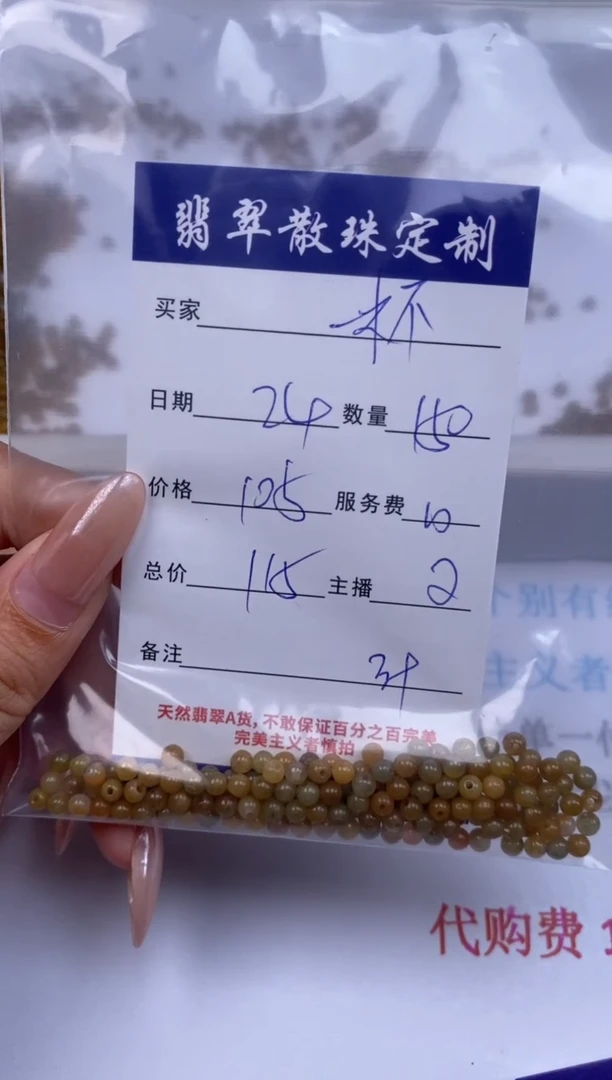 翡翠散珠定制
买家 一杯
日期 24 数量 150
价格 105 服务费 10
总价 115 主播 2
备注
天然翡翠A货，不敢保证百分之百完美
完美主义者慎拍
个别有
主义者
单一
代购费 1